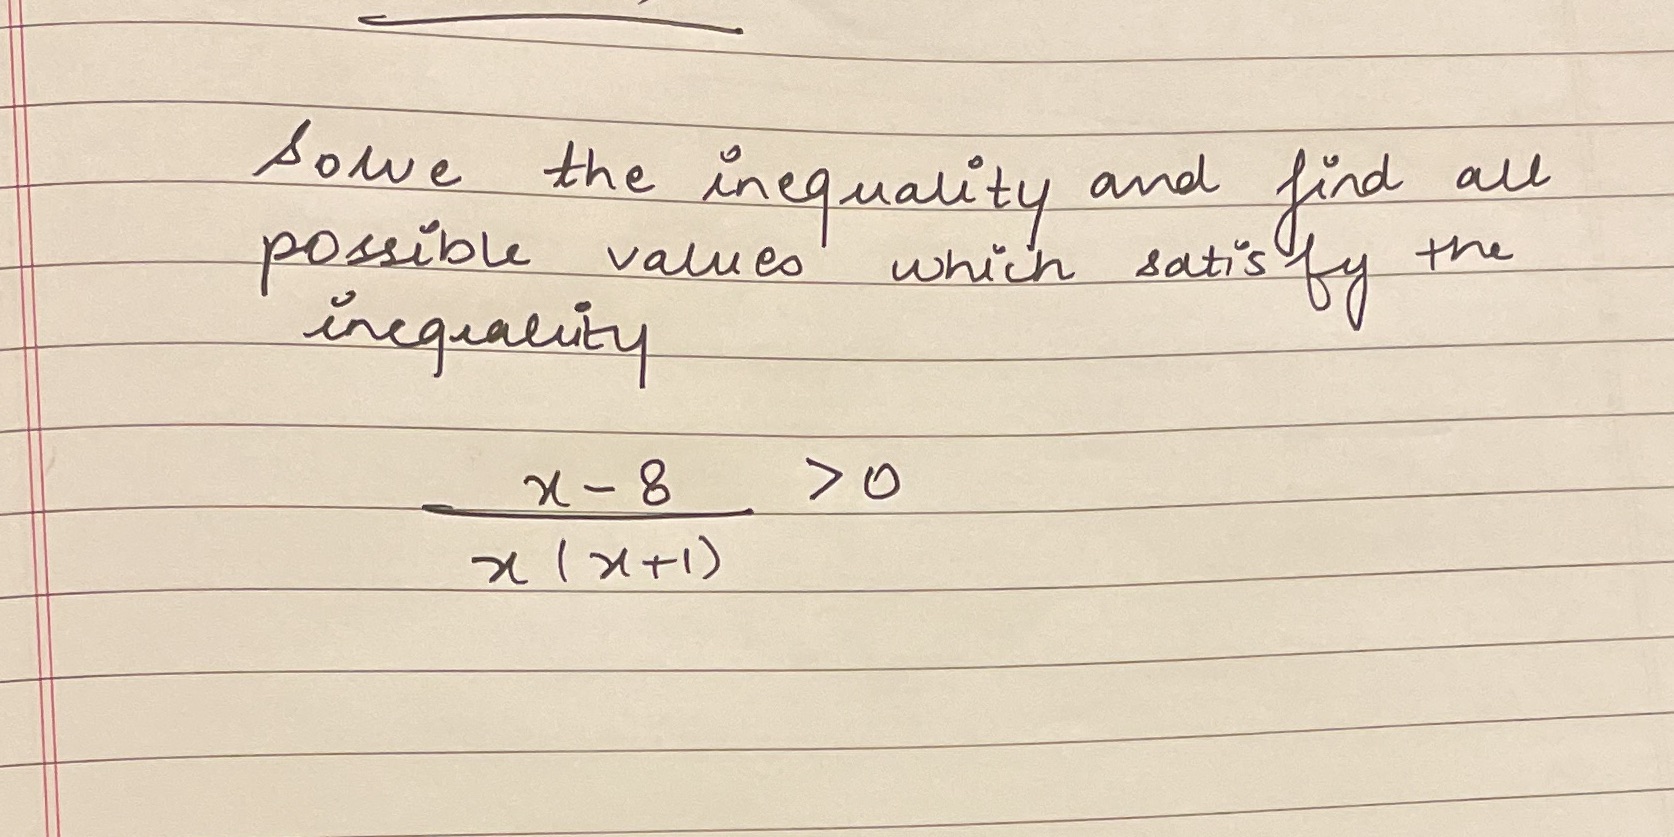 Solve the inequality and find all
possible values which satisfy the
inequality
x - 8 > 0
x (x+1)